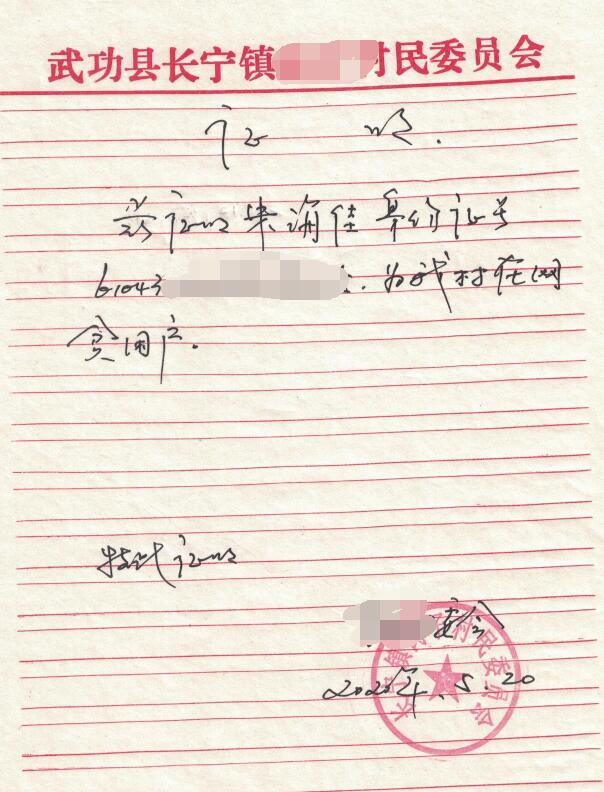 武功县长宁镇 村民委员会
证 明.
兹证明柴海佳身份证号
61043 为我村在网
贫困户.
特此证明
委会
2020年.5.20
长宁镇 村民委员会